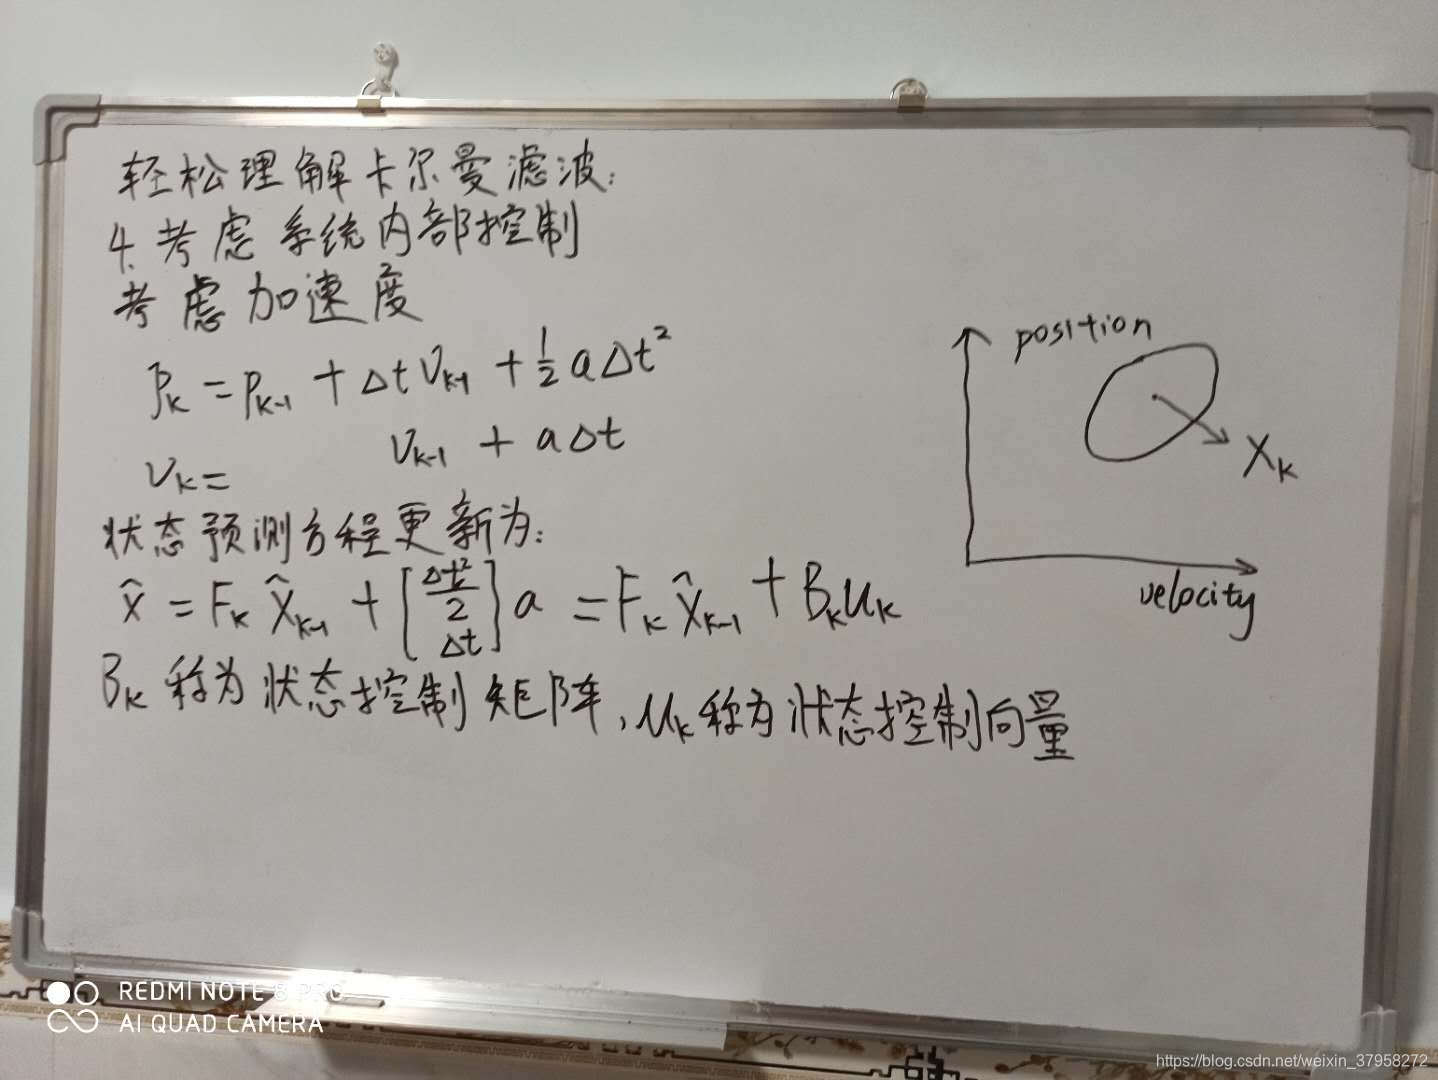 轻松理解卡尔曼滤波:
4.考虑系统内部控制
考虑加速度
pₖ = pₖ₋₁ + Δt vₖ₋₁ + ½ a Δt²
vₖ = vₖ₋₁ + a Δt
状态预测方程更新为:
x̂ = Fₖ x̂ₖ₋₁ + [Δt²/2 Δt] a = Fₖ x̂ₖ₋₁ + Bₖ uₖ
Bₖ称为状态控制矩阵,uₖ称为状态控制向量
position
Xₖ
velocity
REDMI NOTE 8 PRO
AI QUAD CAMERA
https://blog.csdn.net/weixin_37958272